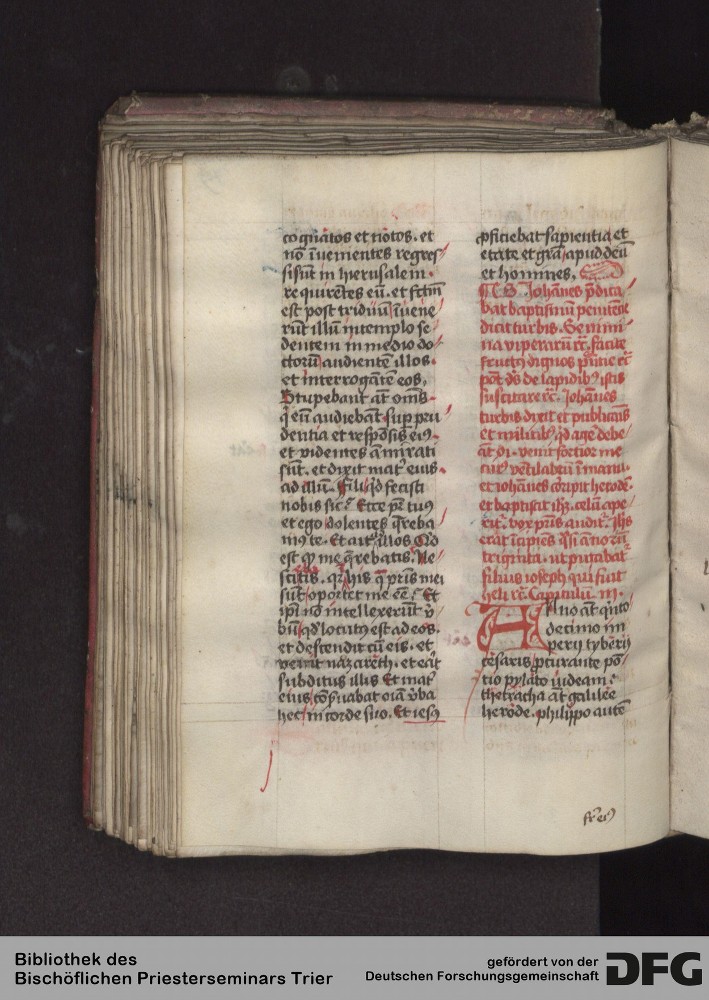 cognatos et notos. et
nō īuenientes regres
sisūt in hierusalem.
requirētes eū. et fctm̄
est post triduū īuene
rūt illū in templo se
dentem in medio do
ctorū audientē illos.
et interrogātē eos.
Stupebant āt om̄s
q̇ eū audiebāt. sup pru
dentia et respōsis eiꝰ.
et videntes āmirati
sūt. et dixit matʼ eius
ad illū. Fili qͥd fecisti
nobis sic. Ecce pr̄ tuꝰ
et ego dolentes q̄reba
mꝰ te. Et ait illos Qͥd
est ꝙ me q̄rebatis. Ne
scitis. qꝛ his q̄ pr̄is mei
sūt oportet me ēē. Et
ip̄i nō intellexerūt ỽ
bū qd̓ locutꝰ est ad eos.
et descendit cū eis. et
venit nazareth. et erat
subditus illis Et matʼ
eius cōẜuabat oīa ỽba
hec in corde suo. Et iesꝰ
ꝓficiebat sapientia et
etate et gr̄a apud deū
et homines.
Iohānes p̄dica
bat baptismū penitētie
dicit turbis. Genimi
na viperarū rc̄. facite
fructꝰ dignos pn̄ie rc̄
pōt ds̄ de lapidibꝰ istis
suscitare rc̄. Iohānes
turbis dixit et publicais
et militibꝰ qͥd agē debe
āt
venit fortior me
cuiꝰ vētilabrū ī manu.
et iohānes corripit herodē.
et baptisat ihs̄. celū ape
rit. vox pr̄is audit. Ihs̄
erat īcipies q̄si ānorū
triginta. ut putabat
filius ioseph qui fuit
heli rc̄. Capitulū. III.
Anno āt qͥnto
decimo im
perij tyberij
cesaris ꝓcurante pō
tio pylato iudeam
thetracha āt galilee
herode. philippo autē
fr̄ eiꝰ
Bibliothek des
Bischöflichen Priesterseminars Trier
gefördert von der
Deutschen Forschungsgemeinschaft
DFG